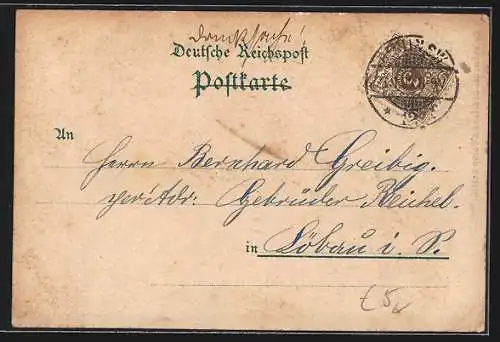 Drucksache!
Deutsche Reichspost
Postkarte
An
Herrn Bernhard Greibig.
per Adr: Gebrüder Reichel.
in Löbau i. S.